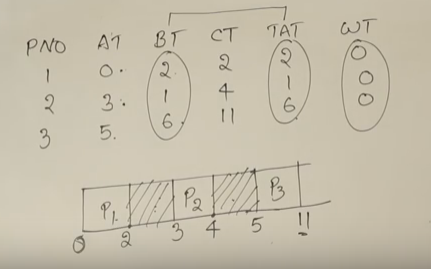 PNO AT BT CT TAT WT
1 0. 2 2 2 0
2 3. 1 4 1 0
3 5. 6 11 6 0
P1 P2 P3
0 2 3 4 5 11